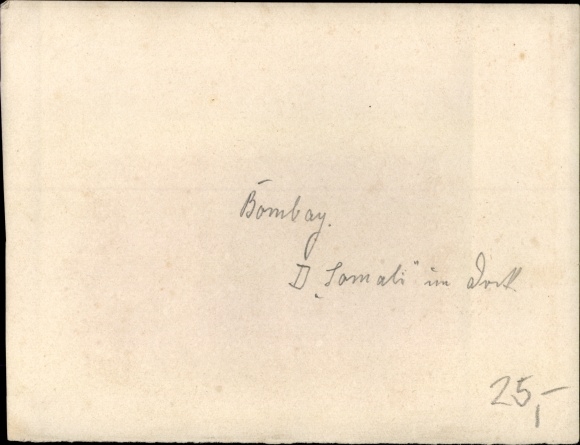 Bombay.
D „Somali" im Dock
25,-